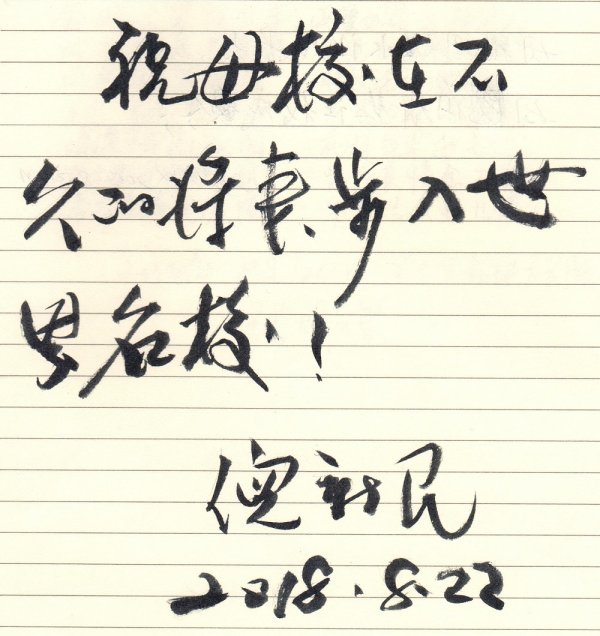 祝母校在不
久的将来步入世
界名校！
倪新民
2018.8.22